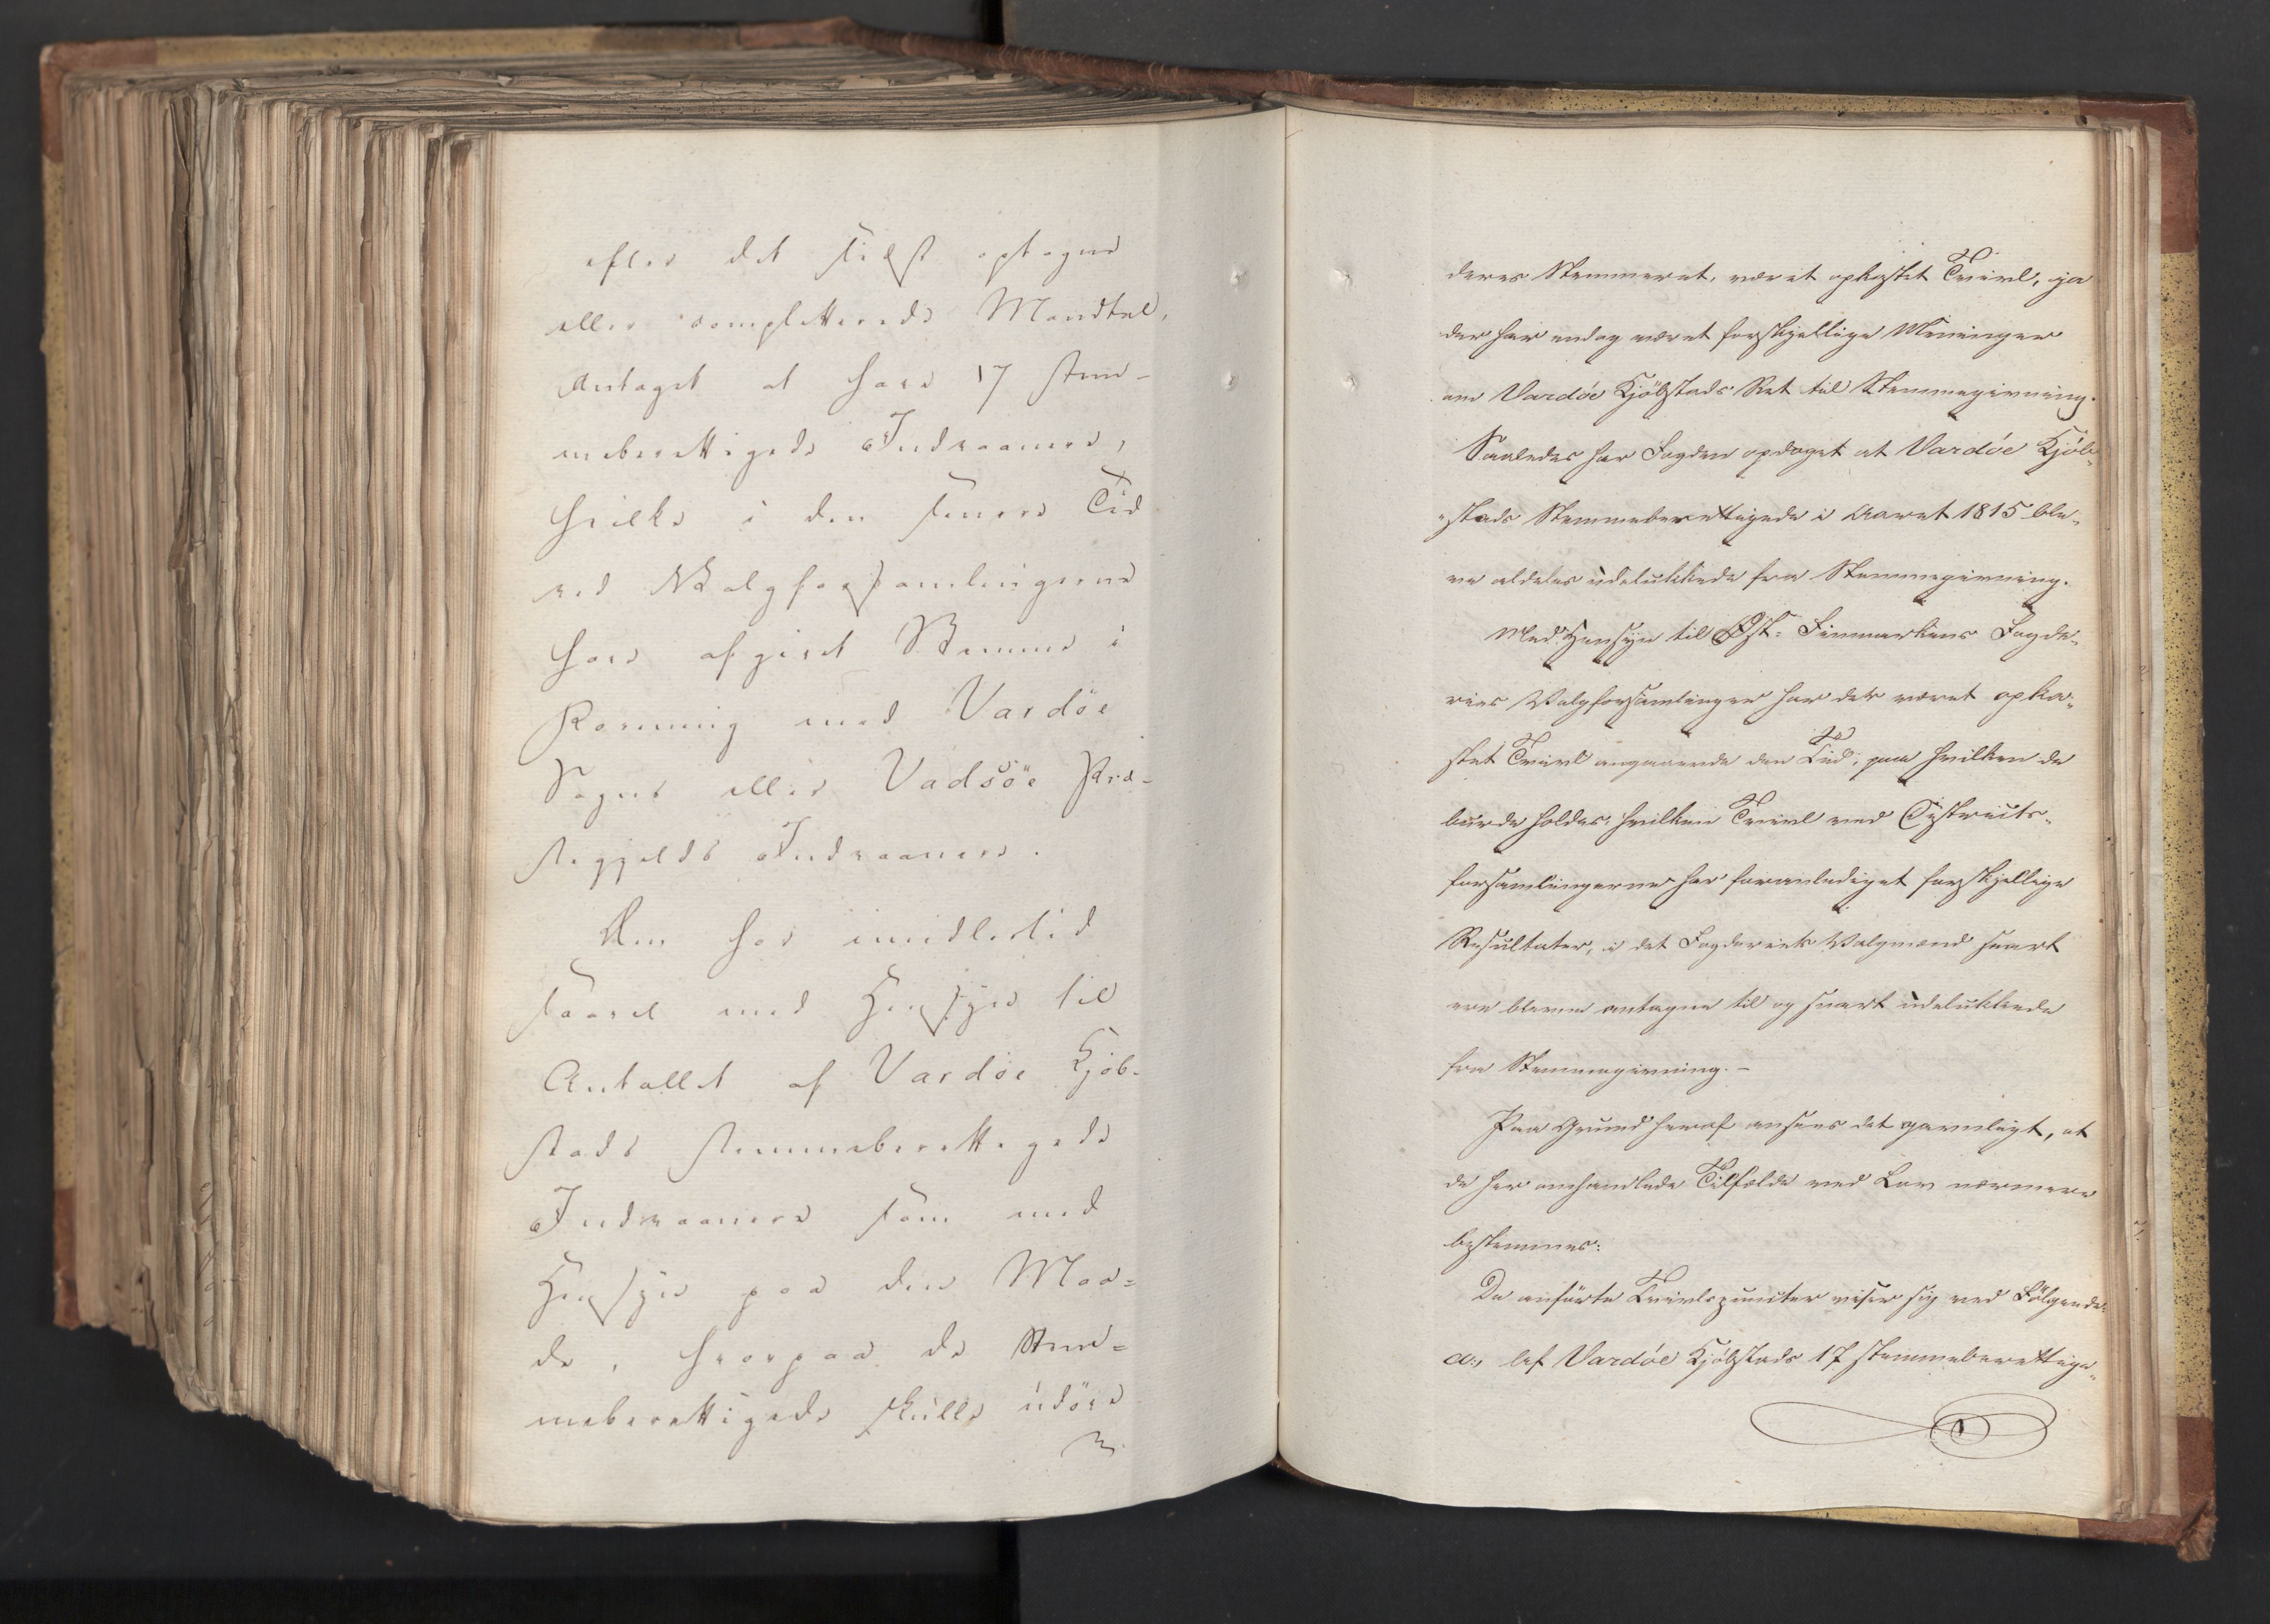 efter det sidst optagne
eller completterede Mandtal,
antaget at have 17 stem-
meberettigede Indvaanere,
hvilke i den senere Tid
ved Valgforsamlingerne
have afgivet Stemme i
Forening med Vardöe
Sogns eller Vadsöe Præ-
stegjelds Indvaanere.
Der har imidlertid
saavel med Hensyn til
Antallet af Vardöe Kjöb-
stads stemmeberettigede
Indvaanere som med
Hensyn paa den Maa=
de, hvorpaa de stem=
meberettigede skulle udöve
deres Stemmeret, været opkastet Tvivl, ja
der har endog været forskjellige Meninger
om Vardöe Kjöbstads Ret til Stemmegivning.
Saaledes har Fogden opdaget at Vardöe Kjöb-
stads Stemmeberettigede i Aaret 1815 ble-
ve aldeles udelukkede fra Stemmegivning.
Med Hensyn til Öst-Finmarkens Fogde-
ries Valgforsamlinger har det været opka-
stet Tvivl angaaende den Tid, paa hvilken de
burde holdes, hvilken Tvivl ved Districts-
forsamlingerne har foranlediget forskjellige
Resultater, i det Fogderiets Valgmænd snart
ere blevne antagne til og snart udelukkede
fra Stemmegivning. –
Paa Grund heraf ansees det gavnligt, at
de her omhandlede Tilfælde ved Lov nærmere
bestemmes:
De anförte Tvivlspuncter viser sig ved Fölgende:
a., Af Vardöe Kjöbstads 17 stemmeberettige-